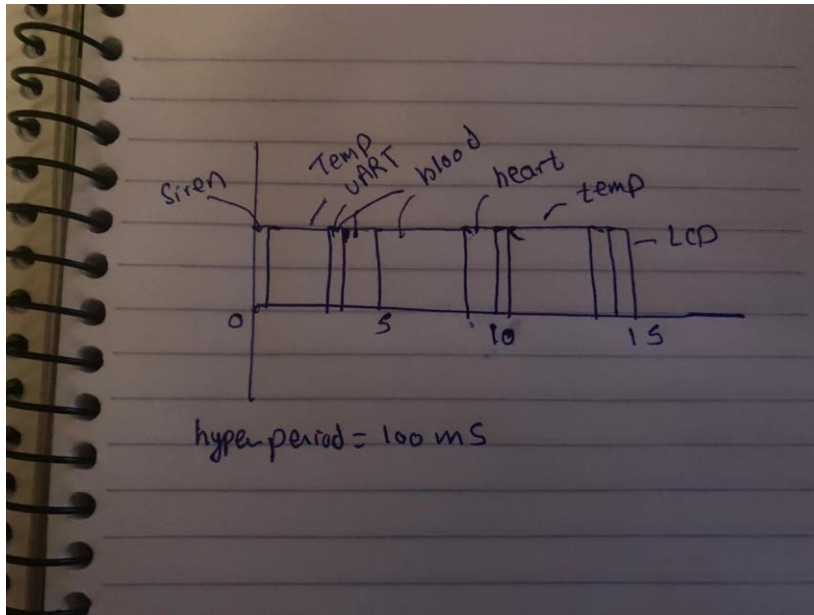 Siren
Temp
UART
blood
heart
temp
LCD
0
5
10
15
hyperperiod = 100 ms